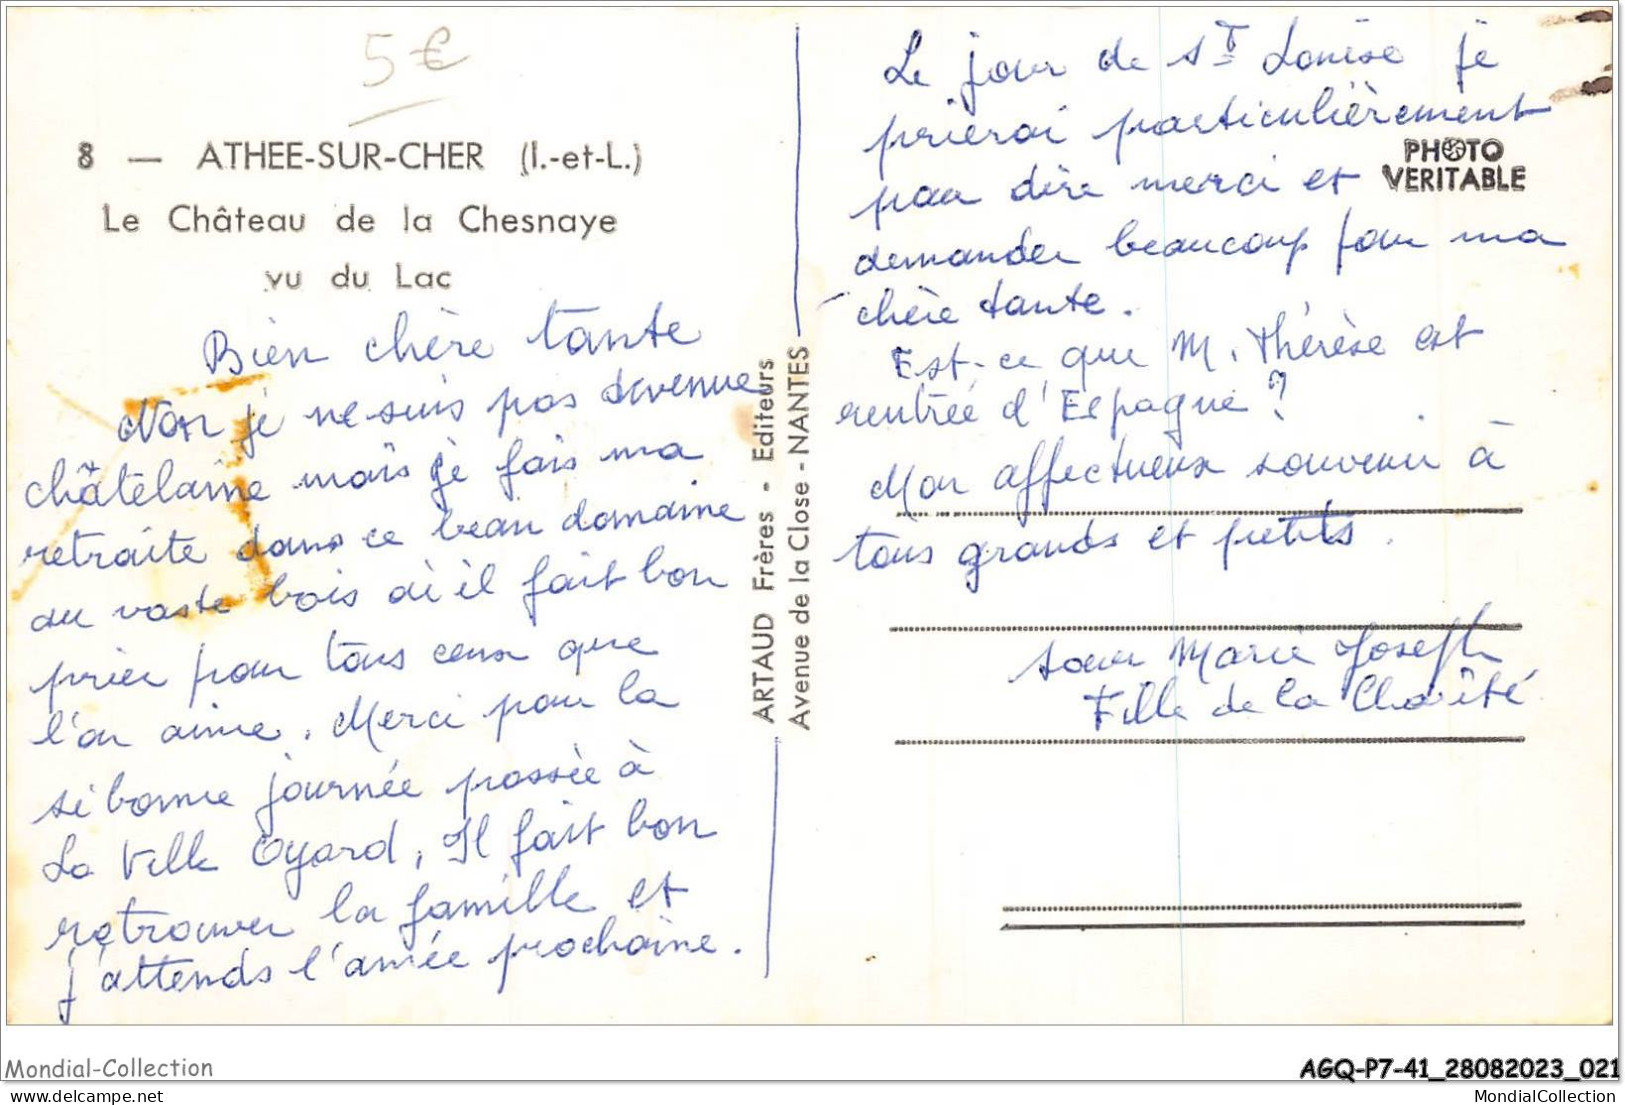 5€
8 — ATHEE-SUR-CHER (I.-et-L.)
Le Château de la Chesnaye
vu du Lac
Bien chère tante
Non je ne suis pas devenue
châtelaine mais je fais ma
retraite dans ce beau domaine
au vaste bois où il fait bon
prier pour tous ceux que
l'on aime. Merci pour la
si bonne journée passée à
La Ville Oyard, Il fait bon
retrouver la famille et
j'attends l'année prochaine.
ARTAUD Frères - Editeurs
Avenue de la Close - NANTES
Le jour de sT Louise je
prierai particulièrement
pour dire merci et
demander beaucoup pour ma
chère tante.
Est-ce que M. Thérèse est
rentrée d'Espagne ?
Mon affectueux souvenir à
tous grands et petits.
soeur Marie Joseph
Fille de la Charité
PHOTO
VERITABLE
Mondial-Collection
AGQ-P7-41_28082023_021
MondialCollection
MondialCollection